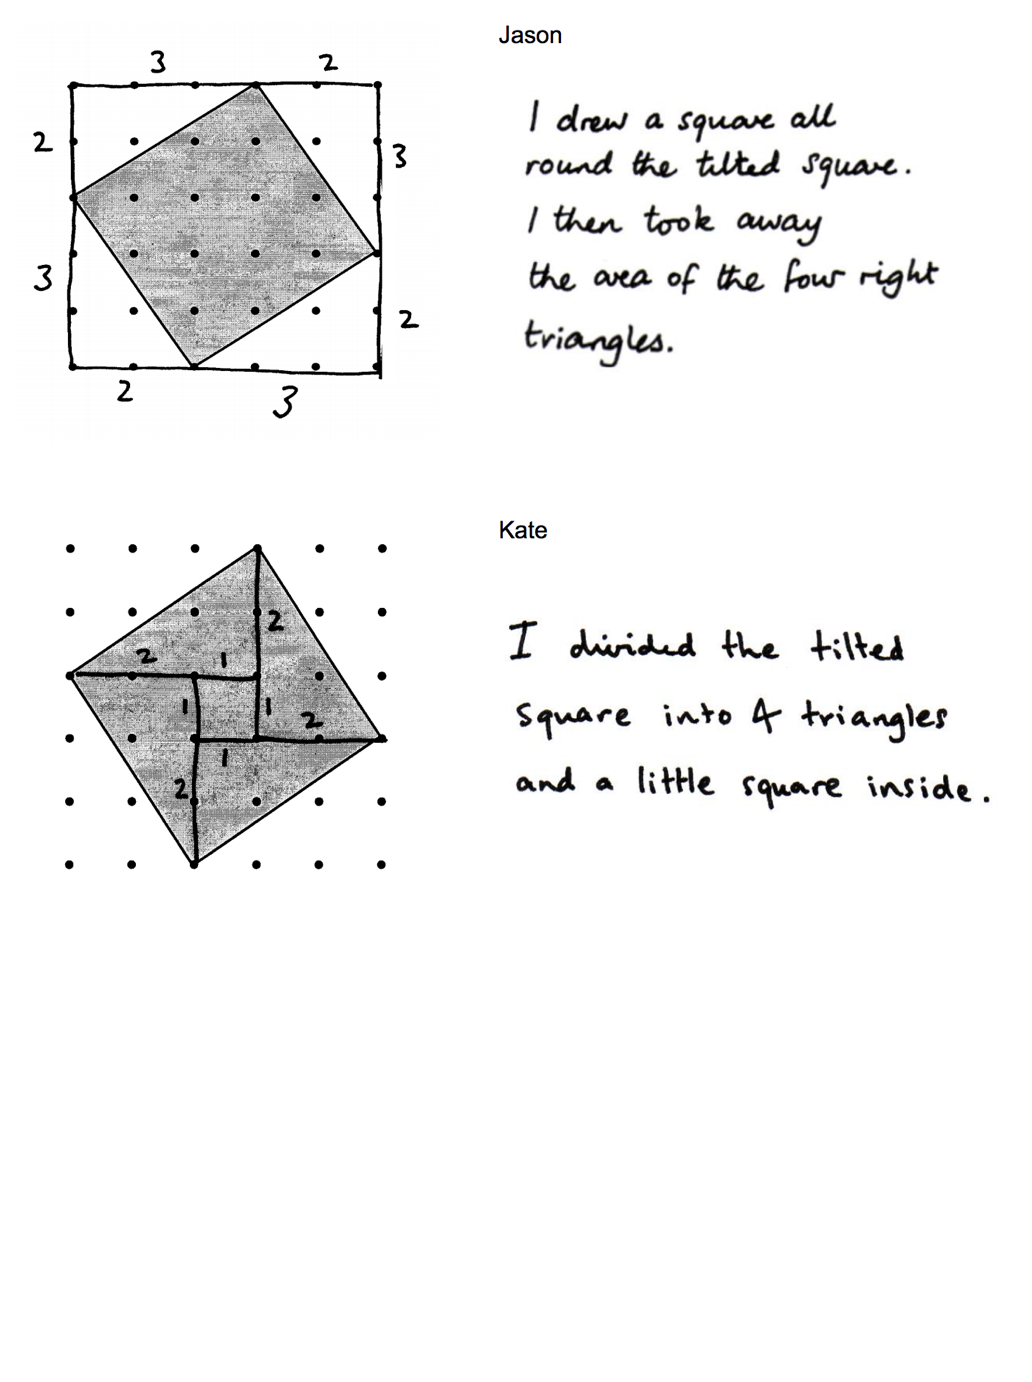 Jason
3 2
2
3
I drew a square all
round the tilted square.
I then took away
the area of the four right
triangles.
3
2
2 3
Kate
2
2 1
1 1 2
1
2
I divided the tilted
square into 4 triangles
and a little square inside.